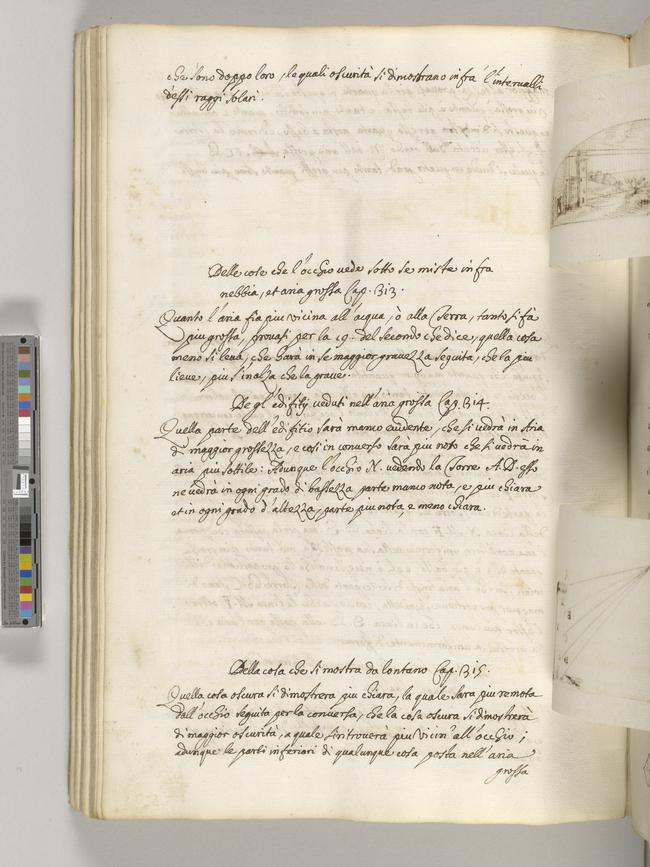 che sono doppo loro, le quali oscurità si dimostrano infra l'intervalli
d'essi raggi solari.
Delle cose che l'occhio vede sotto se miste infra
nebbia, et aria grossa Cap. 313.
Quanto l'aria fia piu vicina all'acqua, ò alla Terra, tanto si fà
piu grossa, provasi per la 19. del secondo che dice, quella cosa
meno si leva, che harà in se maggior gravezza seguita, che la piu
lieve, piu s'inalza che la grave.
De gl'edifitij veduti nell'aria grossa Cap. 314.
Quella parte dell'edifitio sarà manco evidente, che si vedrà in Aria
di maggior grossezza, e così in converso sarà piu noto che si vedrà in
aria piu sottile: Adunque l'occhio N. vedendo la Torre A.D. esso
ne vedrà in ogni grado di bassezza parte manco nota, e piu chiara
et in ogni grado d'altezza parte piu nota, e meno chiara.
Della cosa che si mostra da lontano Cap. 315.
Quella cosa oscura si dimostrera piu chiara, la quale sara piu remota
dall'occhio seguita per la conversa, che la cosa oscura si dimostrerà
di maggior oscurità, a quale si ritroverà piu vicin' all'occhio;
adunque le parti inferiori di qualunque cosa posta nell'aria
grossa